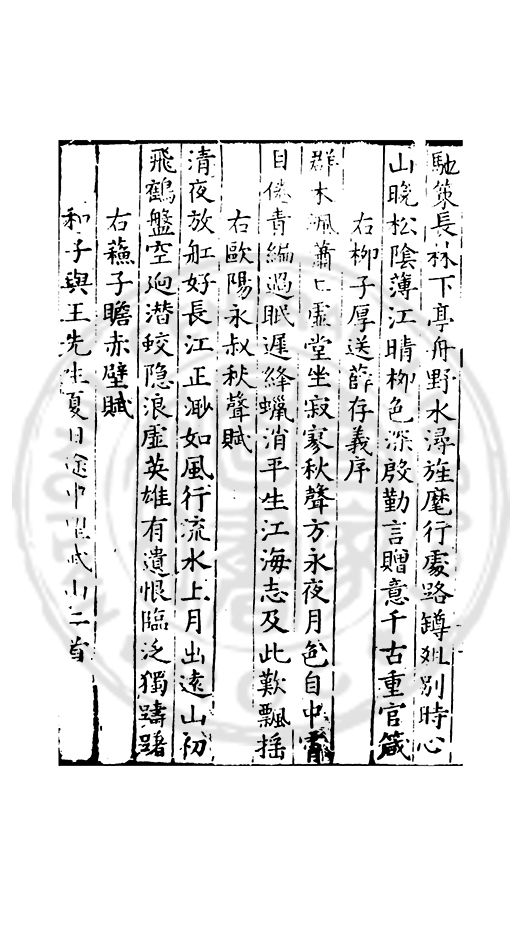 馳策長林下亭舟野水潯旌麾行處路罇俎別時心
山晚松陰薄江晴柳色深殷勤言贈意千古重官箴
右柳子厚送薛存義序
群木颯蕭〻虛堂坐寂寥秋聲方永夜月色自中霄
目倦青編過眠遲絳蠟消平生江海志及此歎飄揺
右歐陽永叔秋聲賦
清夜放舡好長江正渺如風行流水上月出遠山初
飛鶴盤空逈潜蛟隐浪虛英雄有遺恨臨泛獨躊躇
右蘓子瞻赤壁賦
和子與王先生夏日途中 山二首